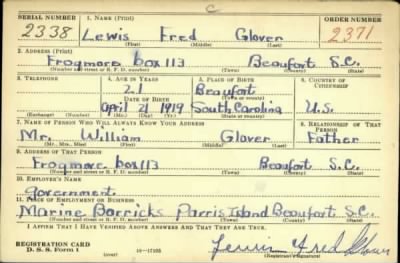 C
SERIAL NUMBER 1. NAME (Print) ORDER NUMBER
2338 Lewis Fred Glover 2371
(First) (Middle) (Last)
2. ADDRESS (Print)
Frogmore box 113 Beaufort S.C.
(Number and street or R. F. D. number) (Town) (County) (State)
3. TELEPHONE 4. AGE IN YEARS 5. PLACE OF BIRTH 6. COUNTRY OF CITIZENSHIP
21 Beaufort
DATE OF BIRTH (Town or county)
April 21 1919 South Carolina U.S.
(Exchange) (Number) (Mo.) (Day) (Yr.) (State or country)
7. NAME OF PERSON WHO WILL ALWAYS KNOW YOUR ADDRESS 8. RELATIONSHIP OF THAT PERSON
Mr. William Glover Father
(Mr., Mrs., Miss) (First) (Middle) (Last)
9. ADDRESS OF THAT PERSON
Frogmore box 113 Beaufort S.C.
(Number and street or R. F. D. number) (Town) (County) (State)
10. EMPLOYER'S NAME
Government
11. PLACE OF EMPLOYMENT OR BUSINESS
Marine Barricks Parris Island Beaufort S.C.
(Number and street or R. F. D. number) (Town) (County) (State)
I AFFIRM THAT I HAVE VERIFIED ABOVE ANSWERS AND THAT THEY ARE TRUE.
REGISTRATION CARD
D. S. S. Form 1 (over) 16—17105 (Registrant's signature)
Lewis Fred Glover